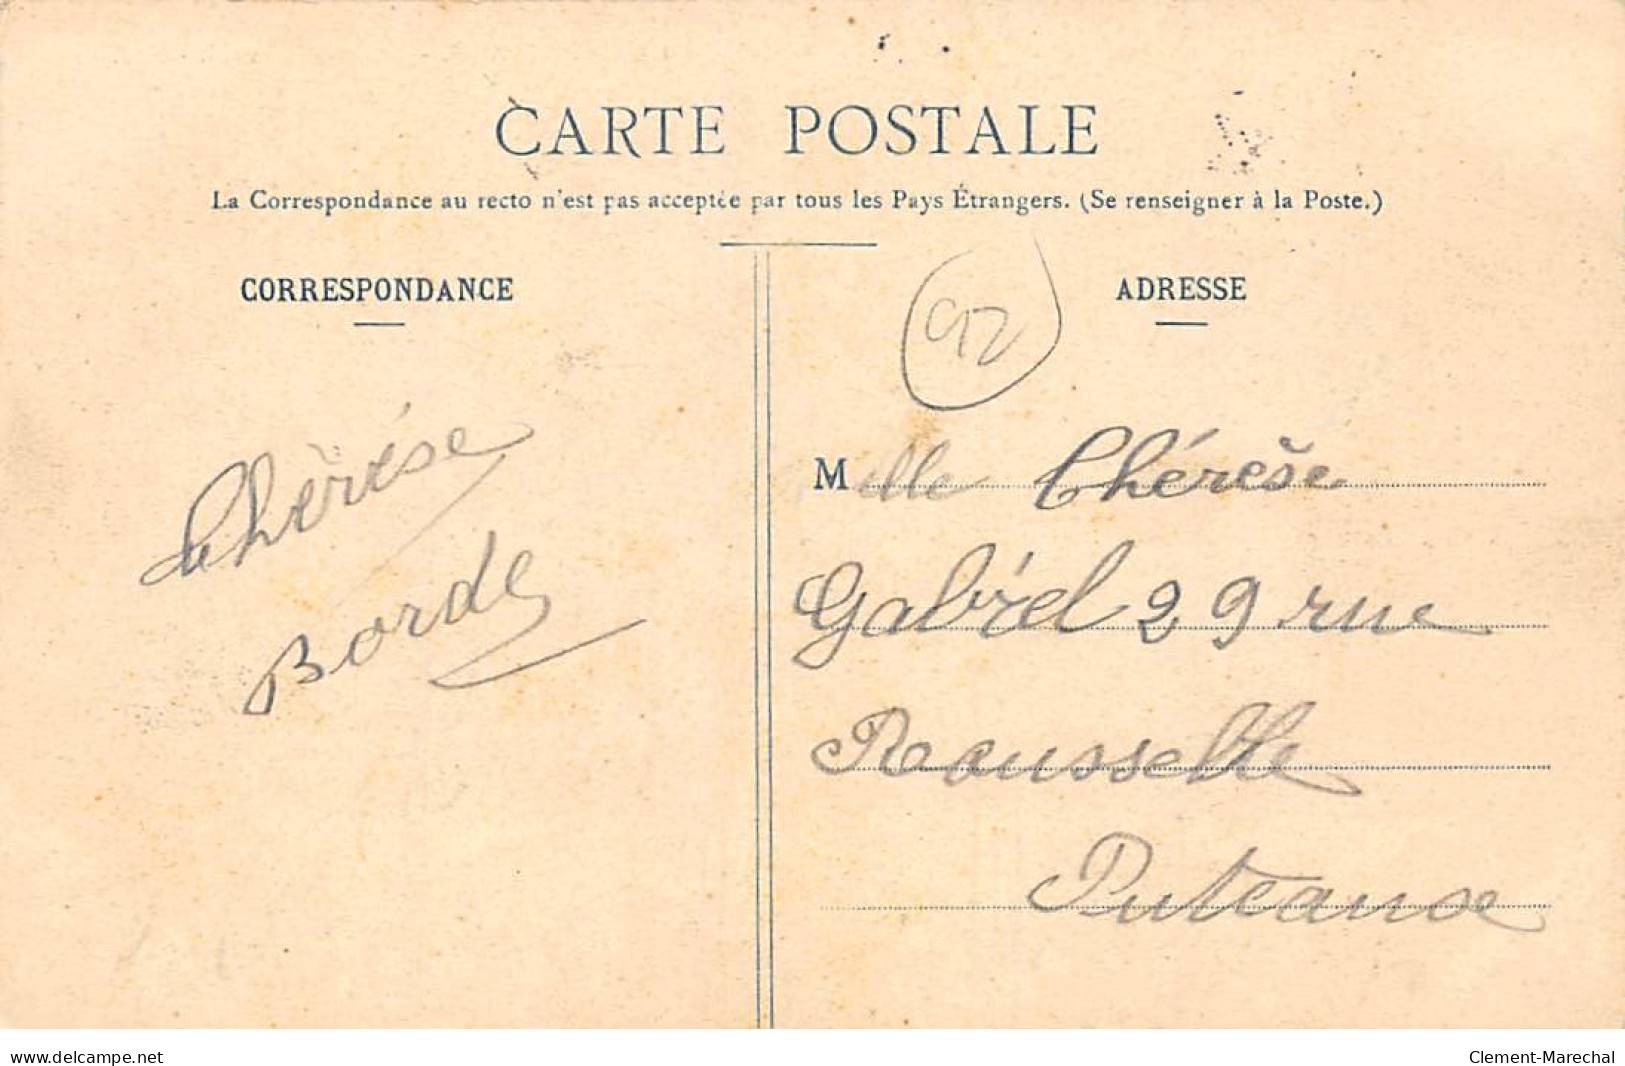 CARTE POSTALE
La Correspondance au recto n'est pas acceptée par tous les Pays Étrangers. (Se renseigner à la Poste.)
CORRESPONDANCE
ADRESSE
92
Thérèse
Borde
Melle Thérèse
Gabriel 29 rue
Rousselle
Puteaux
delcampe.net
Clement-Marechal